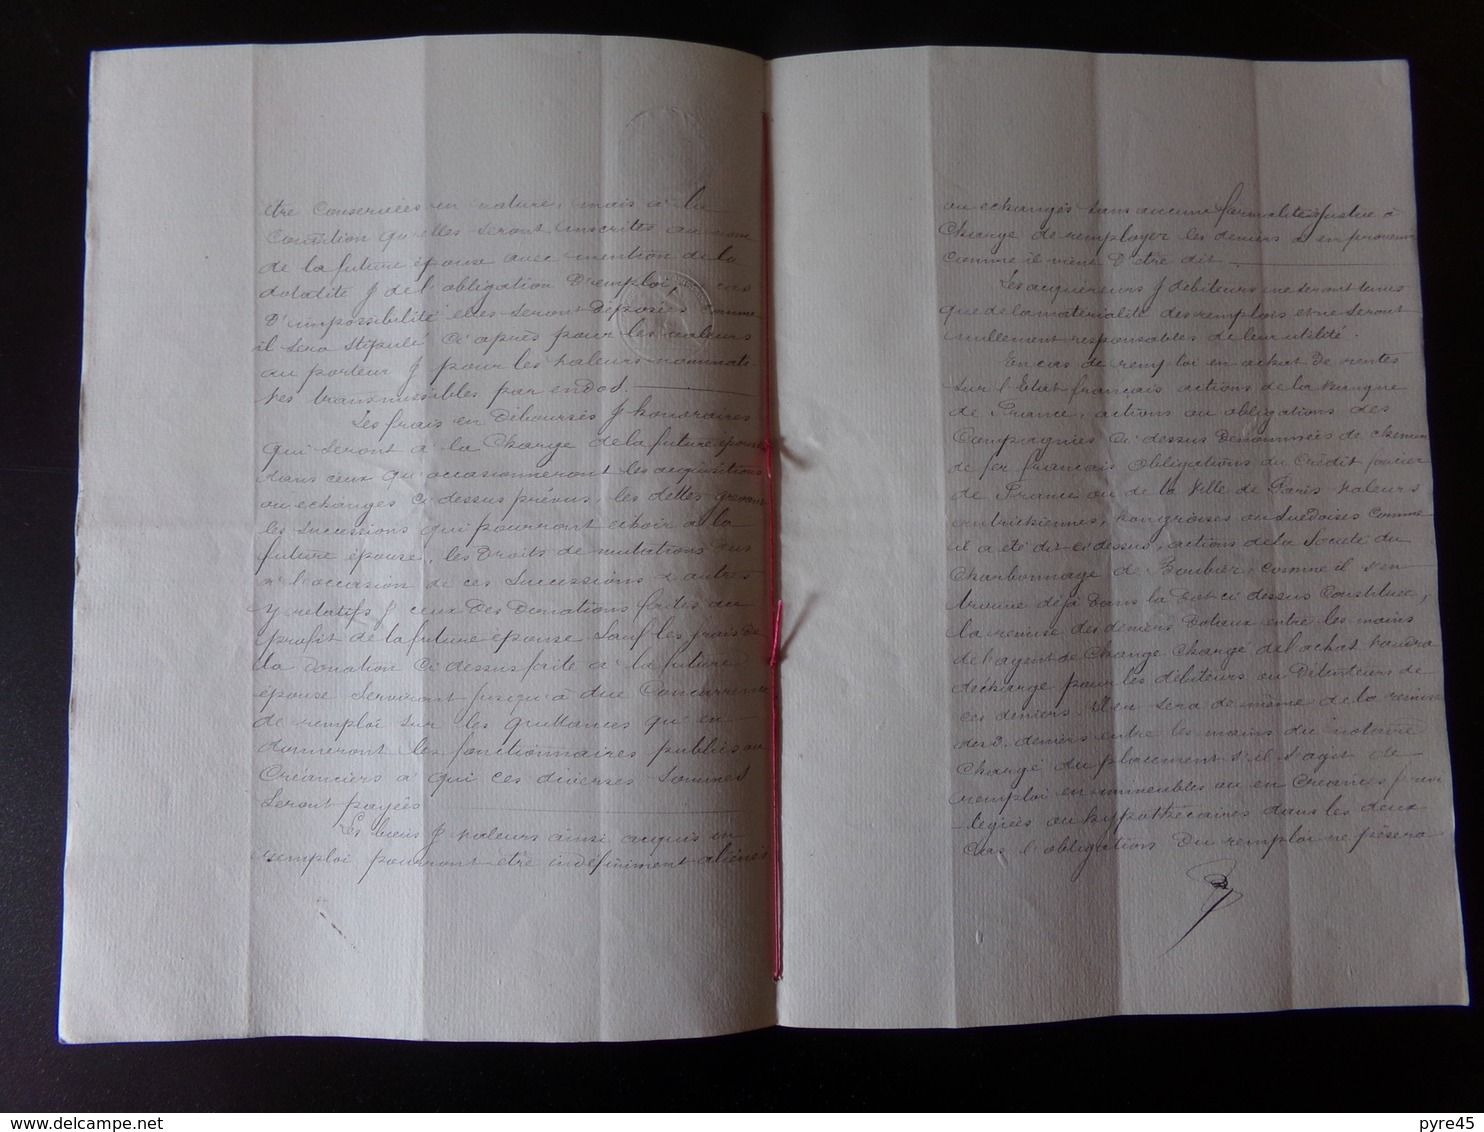 être conservées en nature, mais à la
Condition qu'elles seront inscrites au nom
de la future épouse avec mention de la
dotalité & de l'obligation d'emploi, en cas
D'impossibilité elles seront déposées comme
il sera stipulé ci après pour les valeurs
au porteur & pour les valeurs nominati-
ves transmissibles par endos.
Les frais en Déboursés & honoraires
qui seront à la Charge de la future épouse
dans ceux qu'occasionneront les acquisitions
ou echanges ci dessus prévus, les dettes grevant
les successions qui pourront échoir à la
future épouse, les Droits de mutations dus
à l'occasion de ces successions & autres
y relatifs & ceux Des Donations faites au
profit de la future épouse sauf les frais de
la Donation ci dessus faite à la future
épouse serviront jusqu'à due Concurrence
de remploi sur les quittances qu'en
donneront les fonctionnaires publics ou
Créanciers à qui ces diverses sommes
seront payées
Les biens & valeurs ainsi acquis en
remploi pourront être indéfiniment aliénés
ou échangés sans aucune formalité justice à
Charge de remployer les deniers en provenant
comme il vient D'être dit
Les acquéreurs & débiteurs ne seront tenus
que de la matérialité des remplois et ne seront
nullement responsables de leur utilité.
En cas de remploi en achat De rentes
sur l'Etat français actions de la Banque
de France, actions ou obligations des
Compagnies ci dessus Dénommées de chemin
de fer français obligations du Crédit foncier
de France ou de la Ville de Paris valeurs
autrichiennes, hongroises ou suédoises comme
il a été dit ci dessus, actions de la Société du
Charbonnage de Boubier, comme il s'en
trouve déjà Dans la Dot ci dessus Constituée,
la remise des deniers Dotaux entre les mains
de l'agent de Change Chargé de l'achat vaudra
décharge pour les débiteurs ou Détenteurs de
ces deniers. Il en sera de même de la remise
des d. deniers entre les mains du notaire
Chargé du placement s'il s'agit de
remploi en immeubles ou en Créances privi
-légiées ou hypothécaires dans les deux
Cas l'obligation Du remploi ne pèsera
pyre45